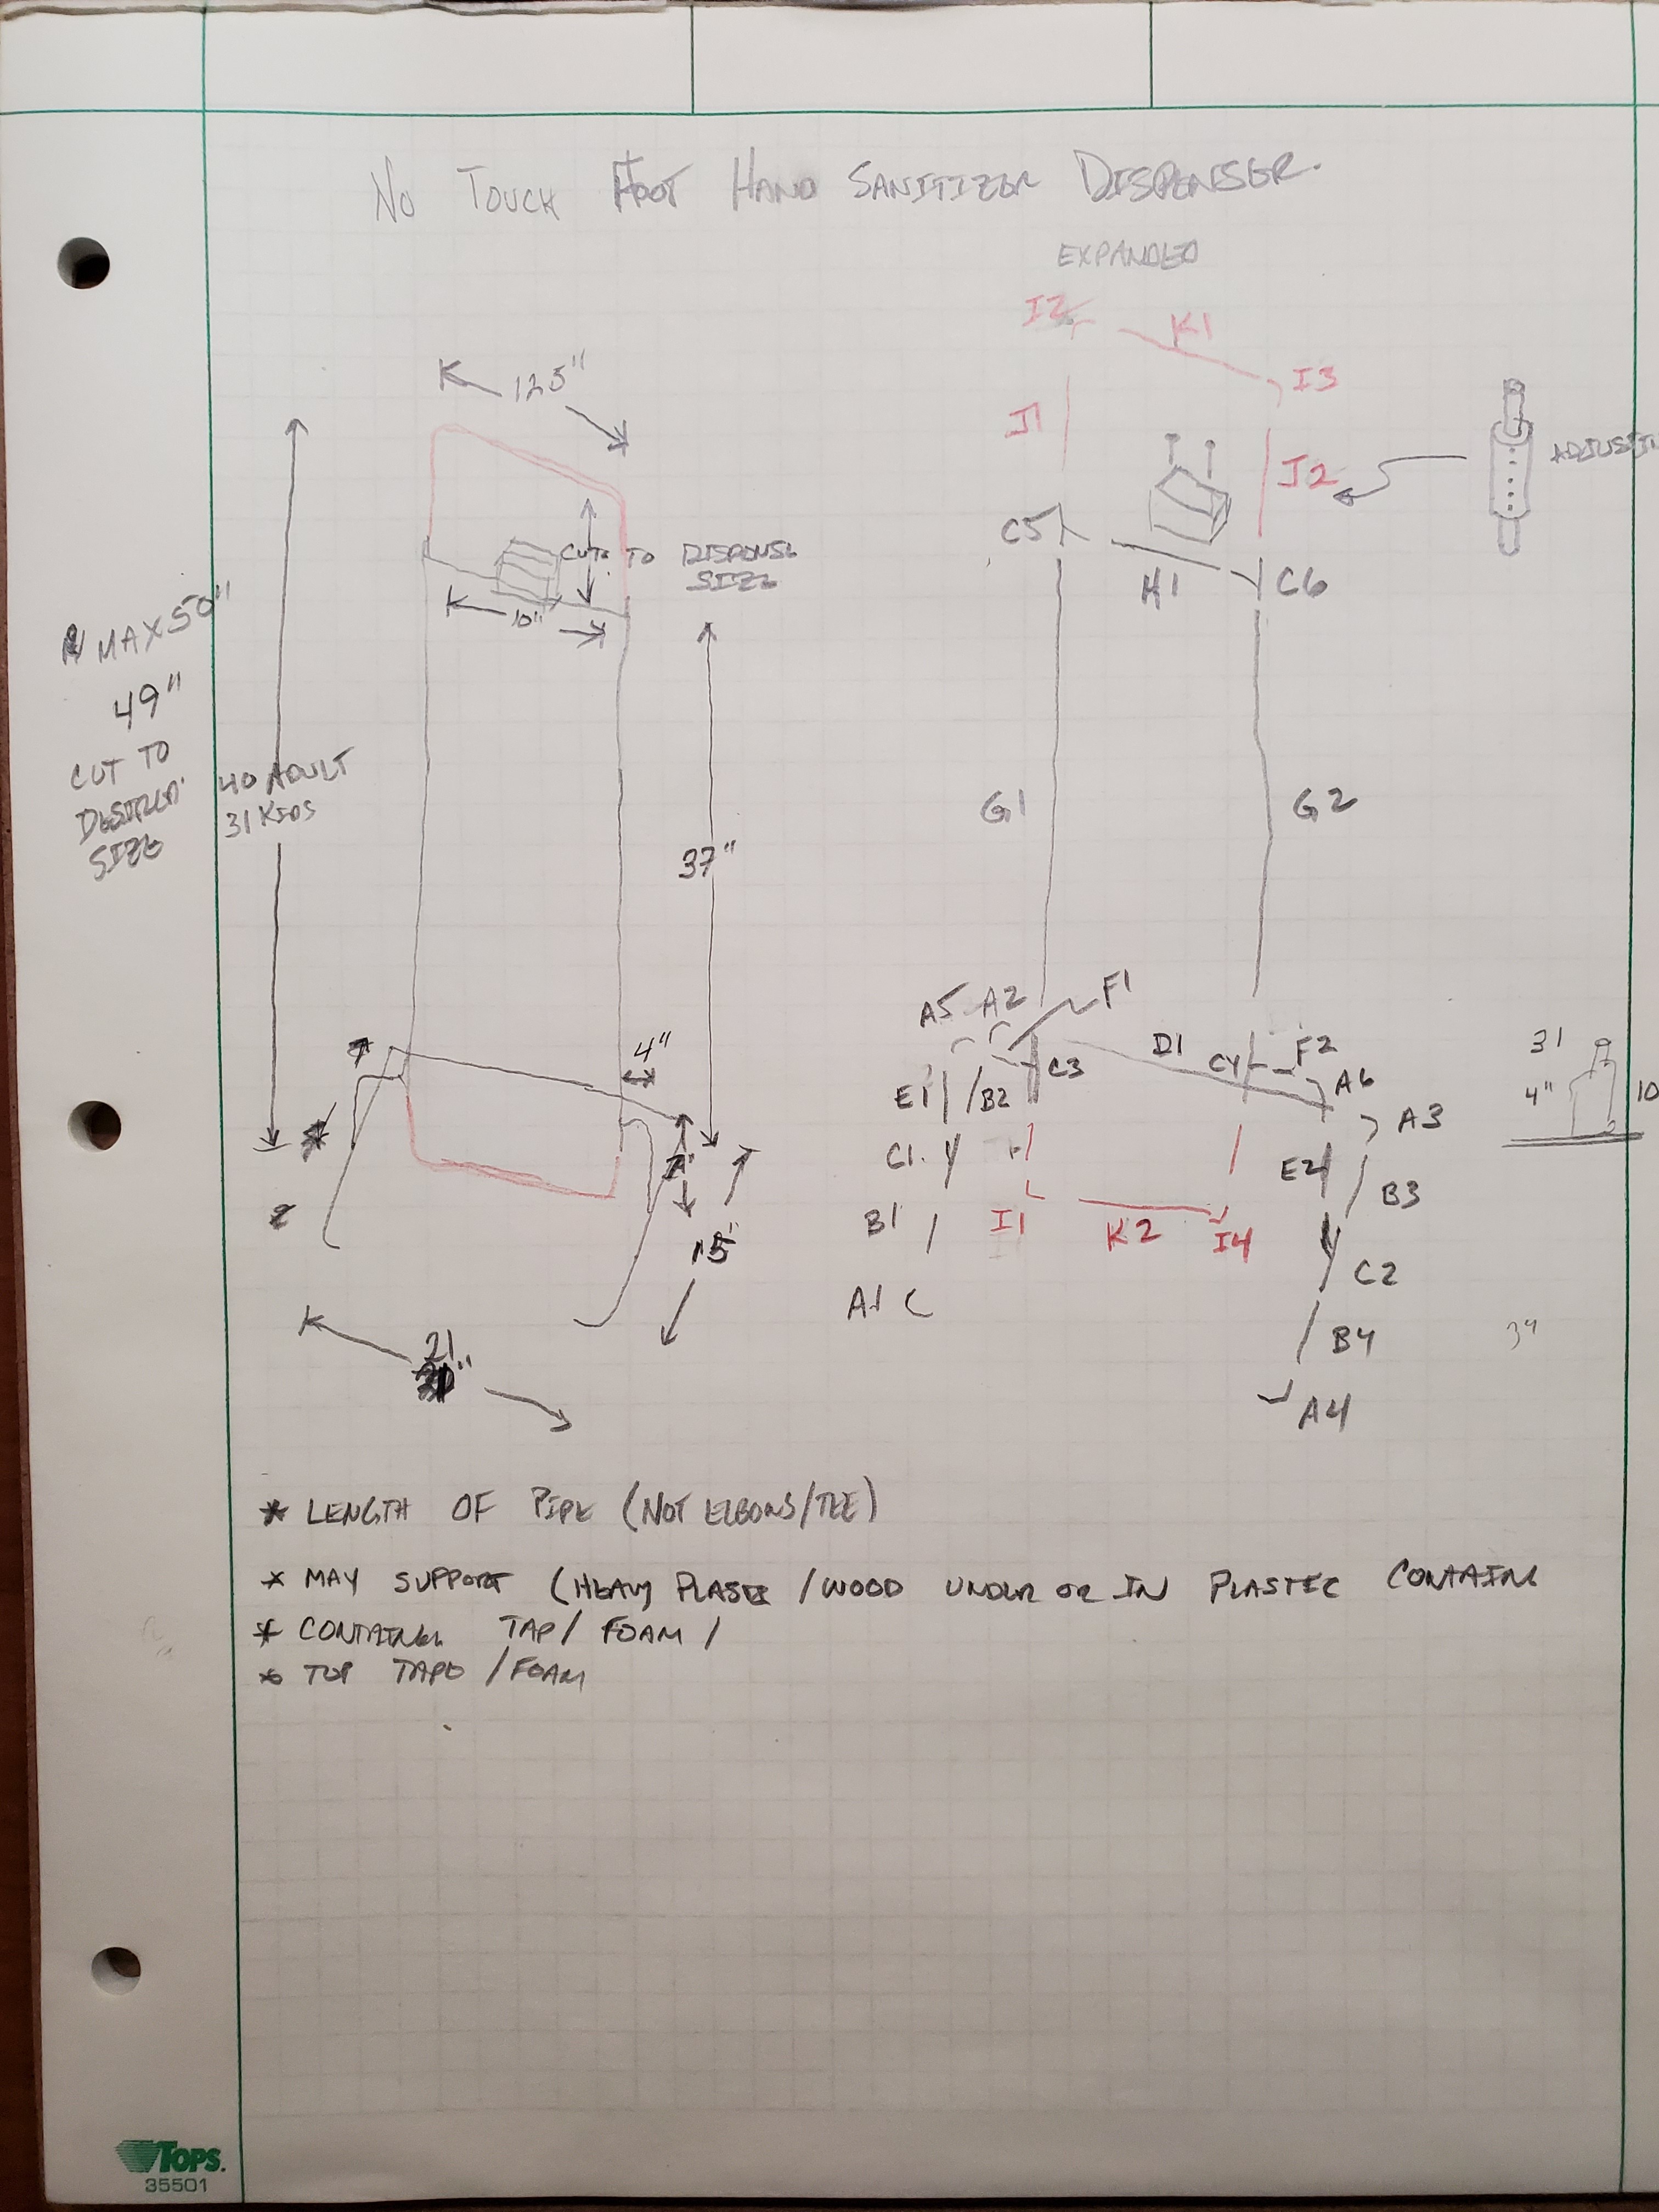 NO TOUCH FOOT HAND SANITIZER DISPENSER.
EXPANDED
I2
K1
I3
J1
J2
C5
H1
C6
G1
G2
12.5"
CUT TO DISPENSE
SIZE
10"
MAX 50"
49"
CUT TO
SIZE
40 ADULT
31 KIDS
37"
4"
15"
21
A5 A2
F1
D1
C4
F2
A6
C3
E1
B2
A3
C1
E2
B3
B1
I1
K2
I4
C2
A1
B4
A4
31
4"
10
3"
* LENGTH OF PIPE (NOT ELBOWS/TEE)
* MAY SUPPORT (HEAVY PLASTIC /WOOD UNDER OR IN PLASTIC
* TAP/ FOAM /
* TOP TAPE /FOAM
TOPS.
35501